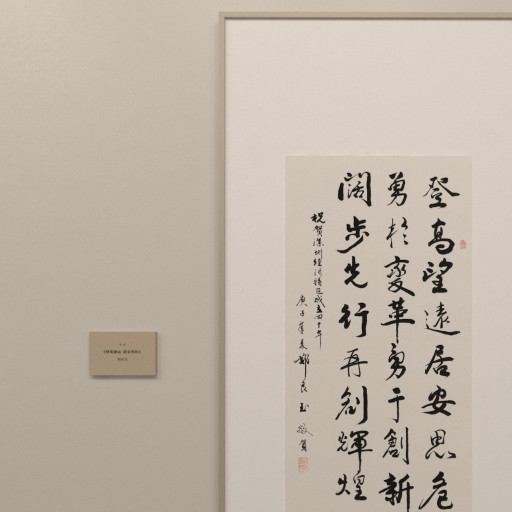 登高望遠居安思危
勇於變革勇于創新
闊步先行再創輝煌
祝賀深圳經濟特區成立四十年
庚子年夏鄭良玉敬賀